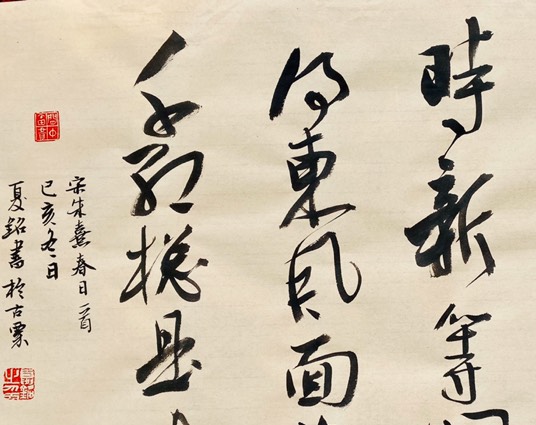 時新等
得東風面
千紅總是
宋朱熹春日一首
己亥冬日
夏銘書於古粟